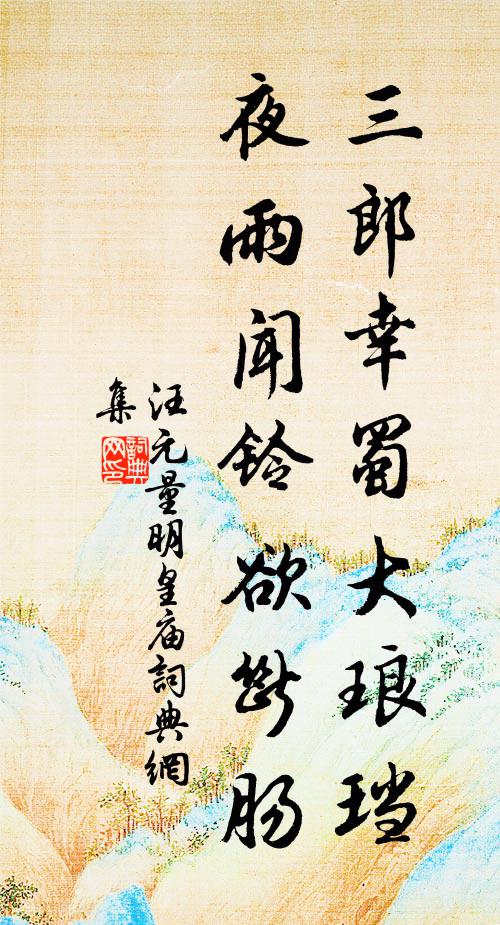 三郎幸蜀大琅珰
夜雨闻铃欲断肠
汪元量明皇庙詞典網
集
詞典
网印